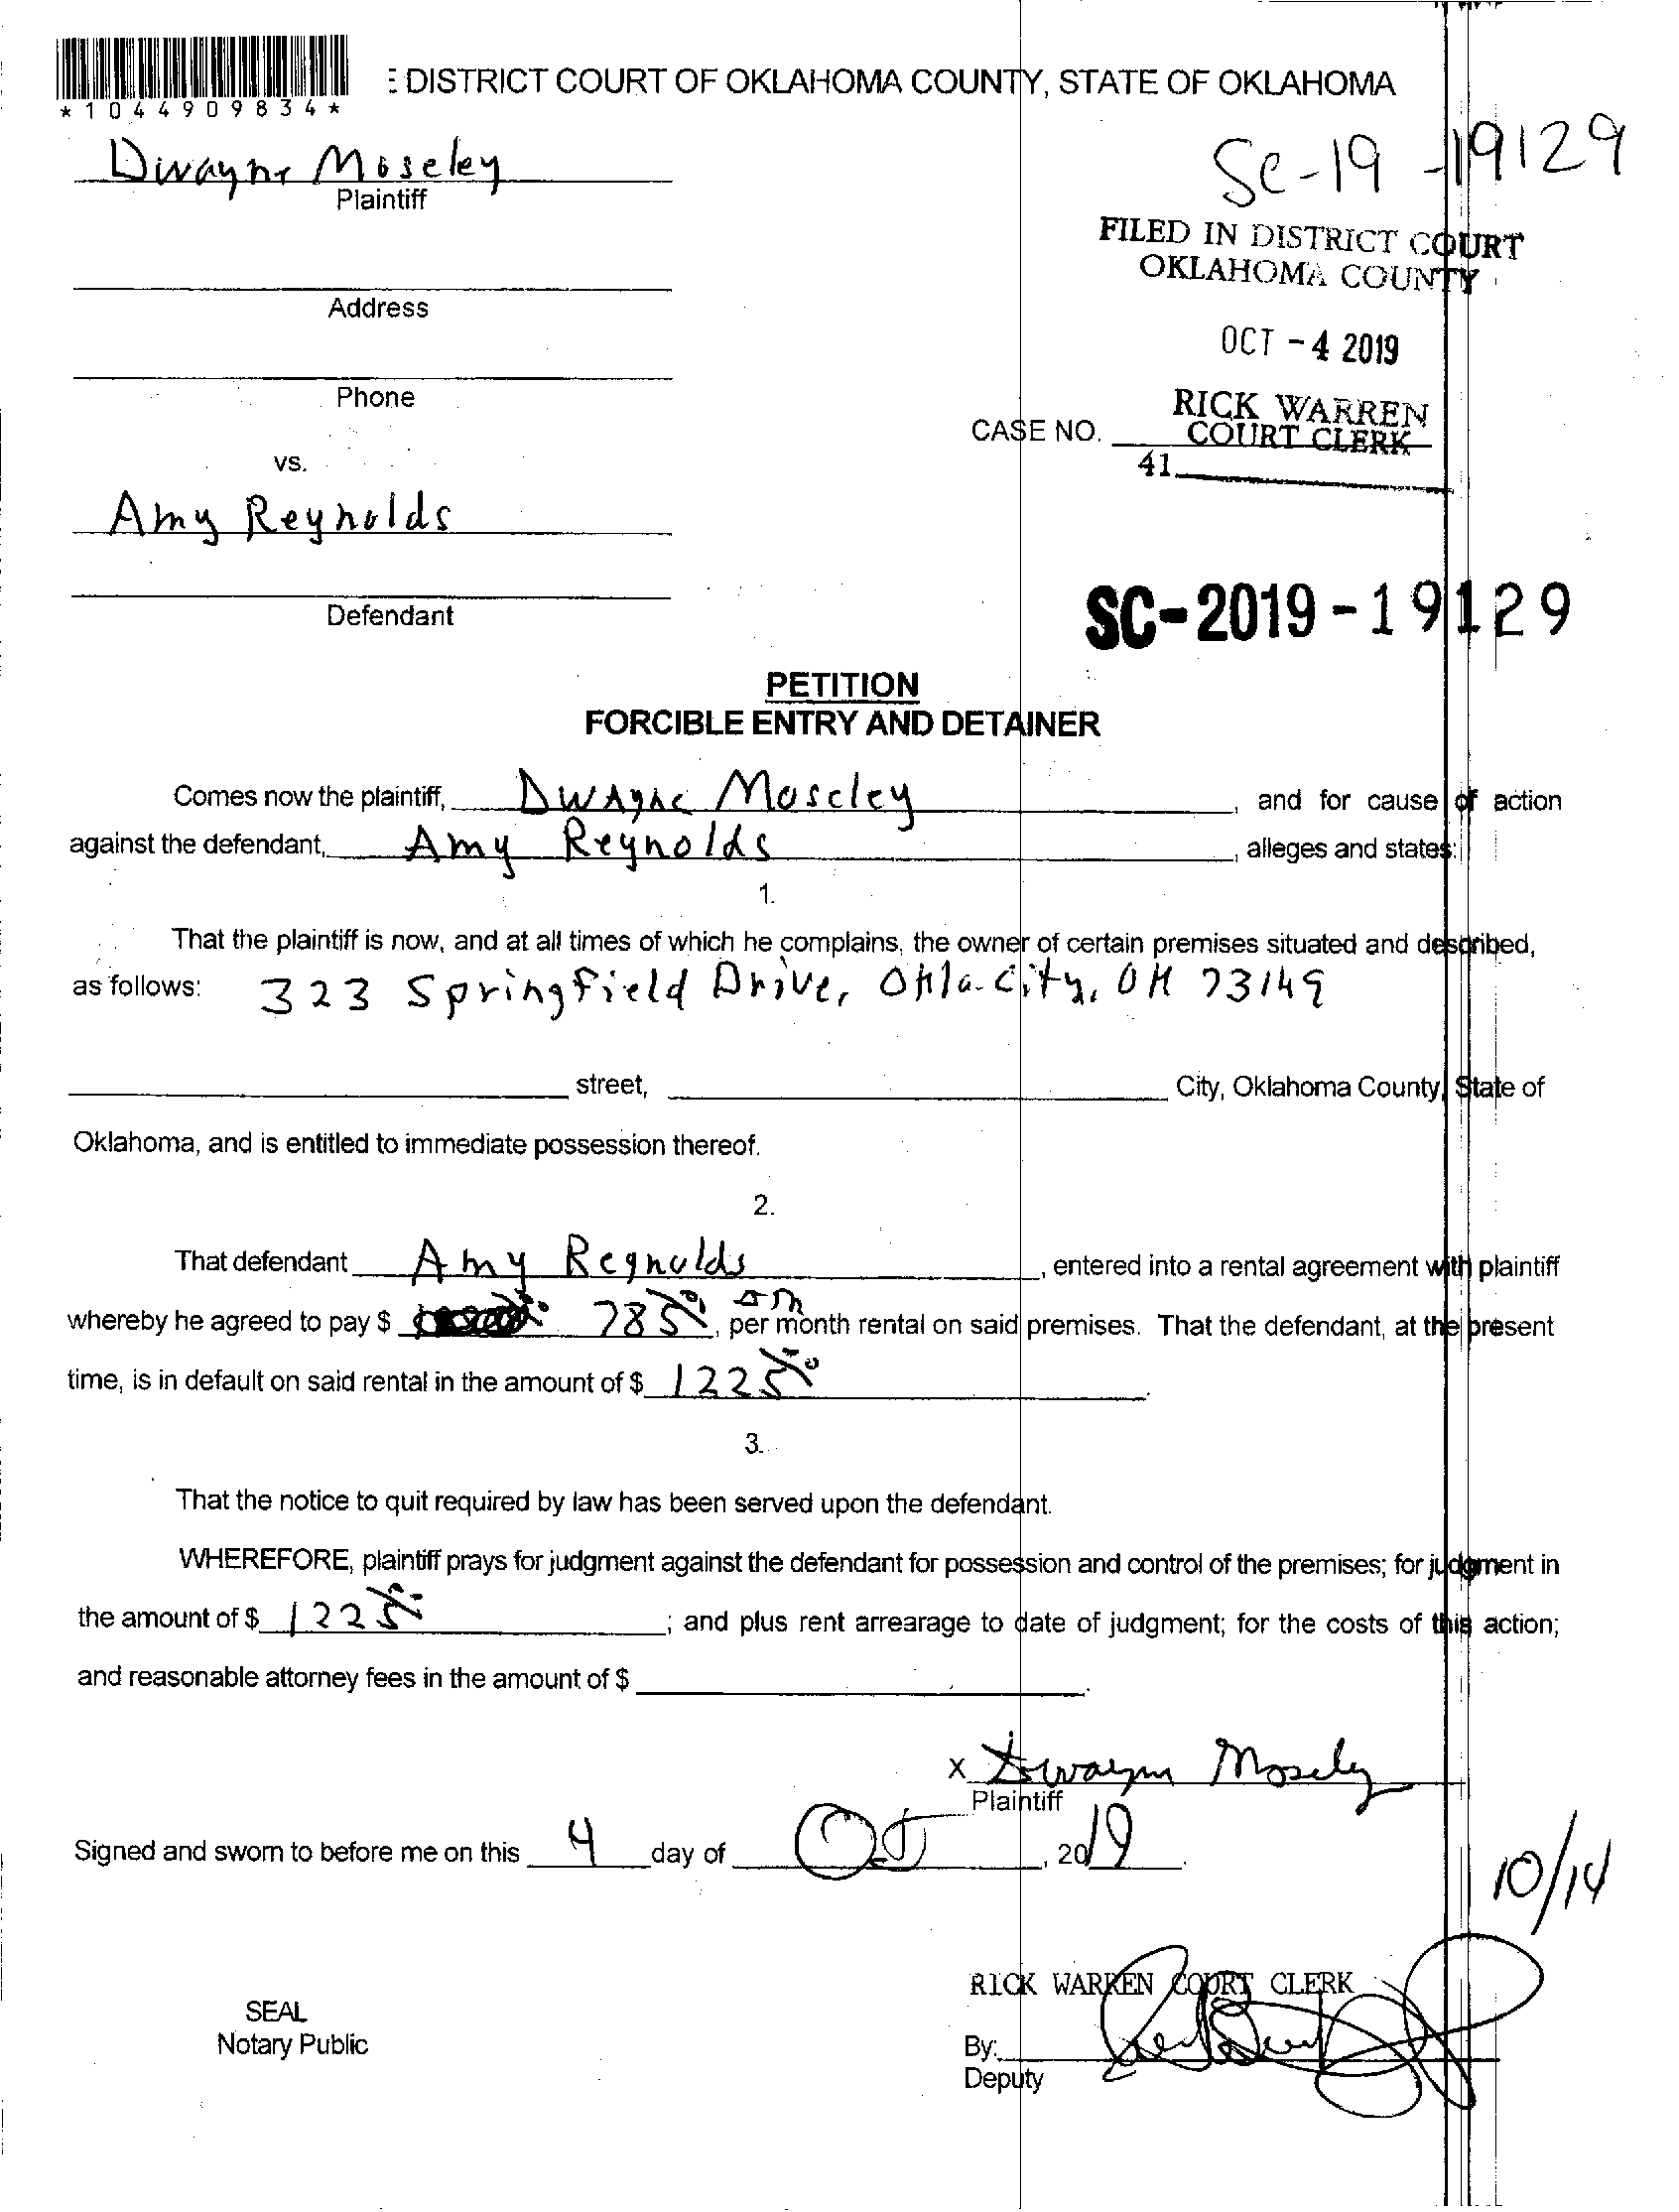 *1044909834*
E DISTRICT COURT OF OKLAHOMA COUNTY, STATE OF OKLAHOMA
Dwayne Moseley
Plaintiff
SC-19-19129
FILED IN DISTRICT COURT
OKLAHOMA COUNTY
Address
OCT -4 2019
Phone
RICK WARREN
CASE NO. COURT CLERK
41
vs.
Amy Reynolds
Defendant
SC-2019-19129
PETITION
FORCIBLE ENTRY AND DETAINER
Comes now the plaintiff, Dwayne Moseley, and for cause of action
against the defendant, Amy Reynolds, alleges and states:
1.
That the plaintiff is now, and at all times of which he complains, the owner of certain premises situated and described,
as follows: 323 Springfield Drive, Okla. City, OK 73149
street, City, Oklahoma County, State of
Oklahoma, and is entitled to immediate possession thereof.
2.
That defendant Amy Reynolds, entered into a rental agreement with plaintiff
whereby he agreed to pay $ 785.00, per month rental on said premises. That the defendant, at the present
time, is in default on said rental in the amount of $ 1225.00.
3.
That the notice to quit required by law has been served upon the defendant.
WHEREFORE, plaintiff prays for judgment against the defendant for possession and control of the premises; for judgment in
the amount of $ 1225.00; and plus rent arrearage to date of judgment; for the costs of this action;
and reasonable attorney fees in the amount of $ .
X Dwayne Moseley
Plaintiff
Signed and sworn to before me on this 4 day of Oct, 2019.
10/14
RICK WARREN COURT CLERK
SEAL
Notary Public
By:
Deputy